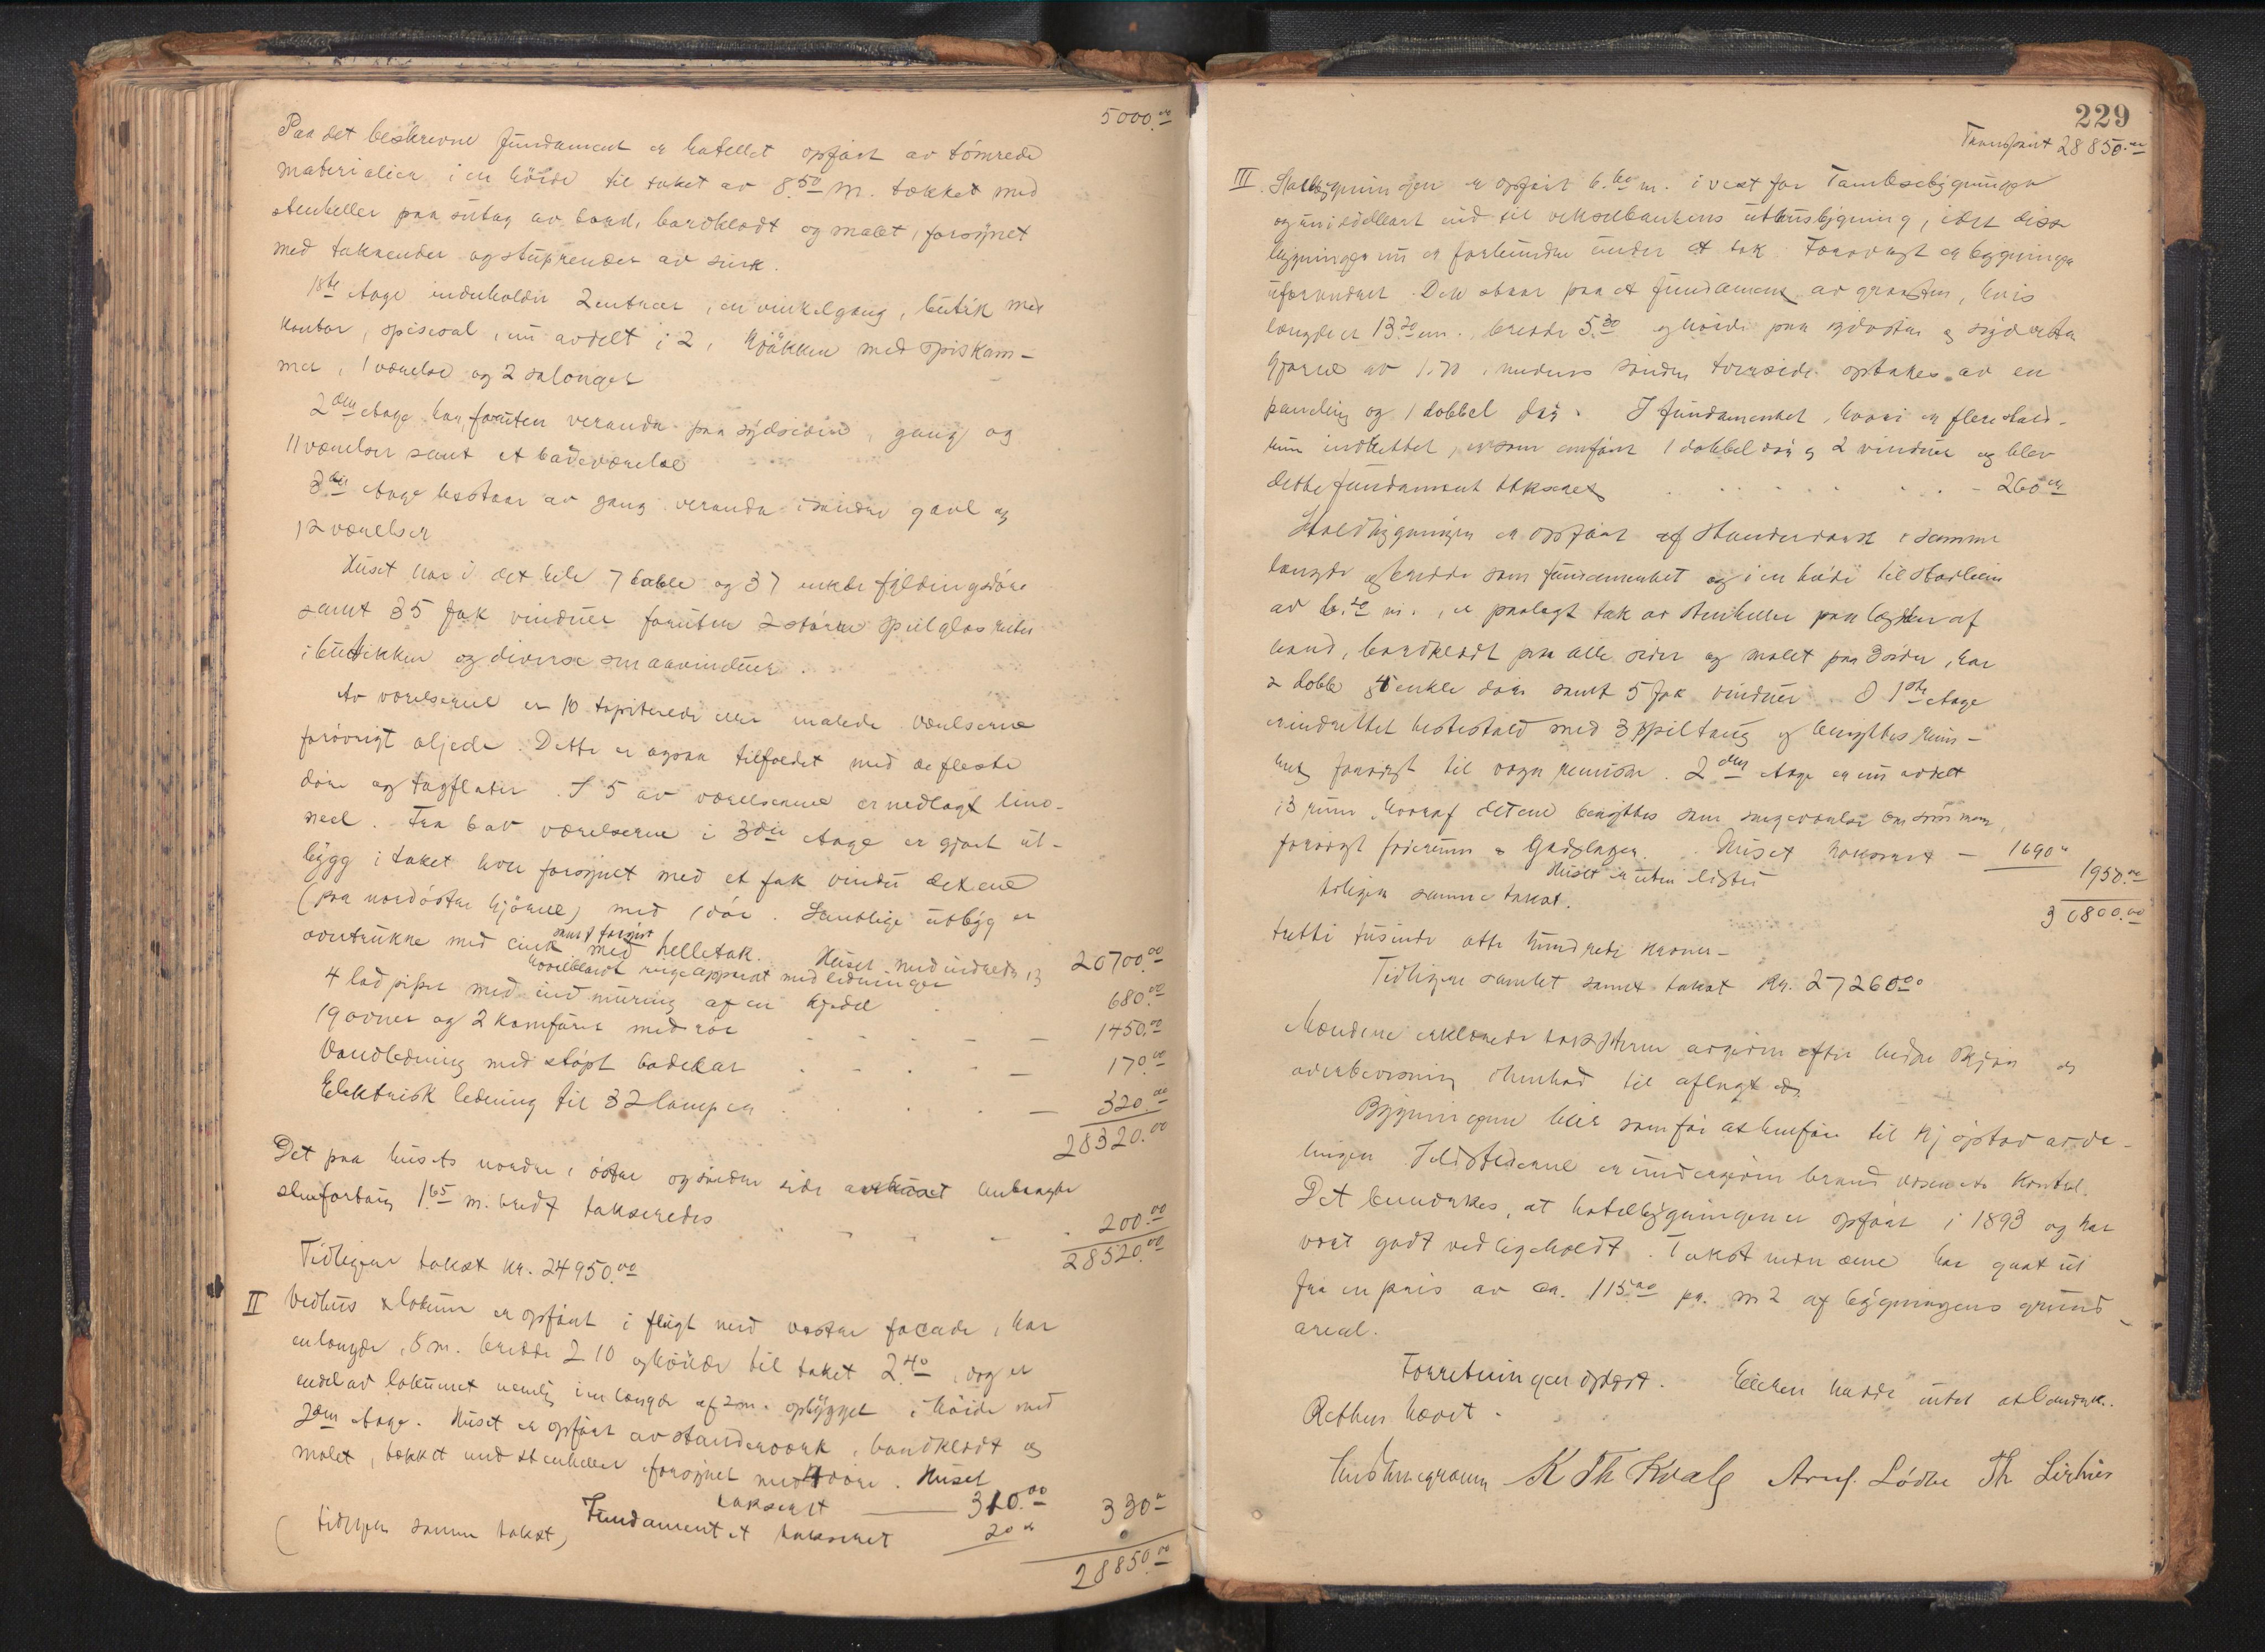 5000.00
Paa det beskrevne fundament er hotellet opført av tømrede
materialier i en høide til taket av 8.50 m. tækket med
stenheller paa sutag av bord, bordklædt og malet, forsynet
med takrender og stuprender av sink.
1ste Etage indeholder 2 entreer, en vinkelgang, butik med
kontor, spisesal, nu avdelt i 2, kjøkken med spiskam-
mer, 1 værelse og 2 salonger
2den Etage har, foruten veranda paa sydsiden, gang og
11 værelser samt et badeværelse
3die Etage bestaar av gang veranda i søndre gavl og
12 værelser
Huset har i det hele 7 doble og 37 enkle fyldingsdøre
samt 35 fak vinduer foruten 2 større speilglas ruter
i butikken og diverse smaavinduer.
Av værelserne er 10 tapiterede eller malede værelserne
forøvrigt oljede. Dette er ogsaa tilfældet med de fleste
døre og tagflater. I 5 av værelserne er nedlagt lino-
neel. Fra 6 av værelserne i 3die Etage er gjort ut-
bygg i taket hver forsynet med et fak vindu det ene
(paa nordøstre hjørne) med 1 dør. Samtlige utbyg er
overtrukne med cink samt forøvrigt med helletak. Huset med indreds 13 20700.00
hovedbladt ringeapparat med ledninger
4 løb piper med indmuring af en kjedel 680.00
19 ovner og 2 komfurer med rør 1450.00
Vandledning med støpt badekar 170.00
Elektrisk ledning til 32 lamper 320.00
28320.00
Det paa husets nordre, østre og søndre side anbragte
stenfortaug 1.65 m. bredt takseredes 200.00
28520.00
Tidligere takst kr. 24950.00
II Vedhus & lokum er opført i flugt med vestre facade, har
en længde, 8 m. bredde 2 10 og høide til taket 2.40, dog er
endel av lokumet nemlig i en længde af 2 m. opbygget i høide med
2den Etage. Huset er opført av standerværk, bordklædt og
malet, tækket med stenheller forsynet med 4 døre. Huset
taksert 310.00
Fundamentet takseret 20.00 330.00
(tidligere samme takst)
28850.00
229
Transport 28850.00
III. Staldbygningen er opført 6.60 m. i vest for Tambsebygningen
og umiddelbart ind til vekselbankens uthusbygning, idet disse
bygninger nu er forbundne under et tak. Forøvrigt er bygningen
uforandret. Den staar paa et fundament av graasten, hvis
længde er 13.70 m. bredde 5.30 og høide paa sydøstre og sydvestre
hjørne av 1.70, medens søndre tverside optakes av en
paneling og 1 dobbel dør. I fundamentet, hvori er flere stald-
rum indrettet, er som anført 1 dobbel dør og 2 vinduer og blev
dette fundament takseret 260.00
Staldbygningen er opført af Standerværk i samme
længde og bredde som fundamentet og i en høide til stavlein
av 6.10 m., er paalagt tak av stenheller paa lægter af
bord, bordklædt paa alle sider og malet paa 3 sider, har
2 doble 4 enkle døre samt 5 fak vinduer. I 1ste Etage
er indrettet hestestald med 3 spiltaug og benyttes rum-
met forøvrigt til vogn remisse. 2den Etage er nu avdelt
i 3 rum hvoraf det ene benyttes som sengeværelse
forøvrigt foderum & Gadslager. Huset takseret - 1690.00
1950.00
Huset er uten ildsted
tidligere samme takst.
30800.00
tretti tusinde otte hundrede kroner -
Tidligere samlet samet takst Kr. 27260.00
Mændene erklærede taksterne avgivne efter bedste skjøn og
overbevisning i henhold til aflagt ed.
Bygningene blir som før at henføre til kjøpstadavde-
lingen. Ildstederne er undergivne brand væsenets Kontrol.
Det bemerkes, at hotelbygningen er opført i 1893 og har
vært godt vedligeholdt. Takstmændene har gaat ut
fra en pris av ca. 115.00 pr. m2 af bygningens grund-
areal.
Forretningen oplæst. Eieren hadde intet at bemerke.
Retten hævet.
K Th Kvale Arnf. Lødøe Th